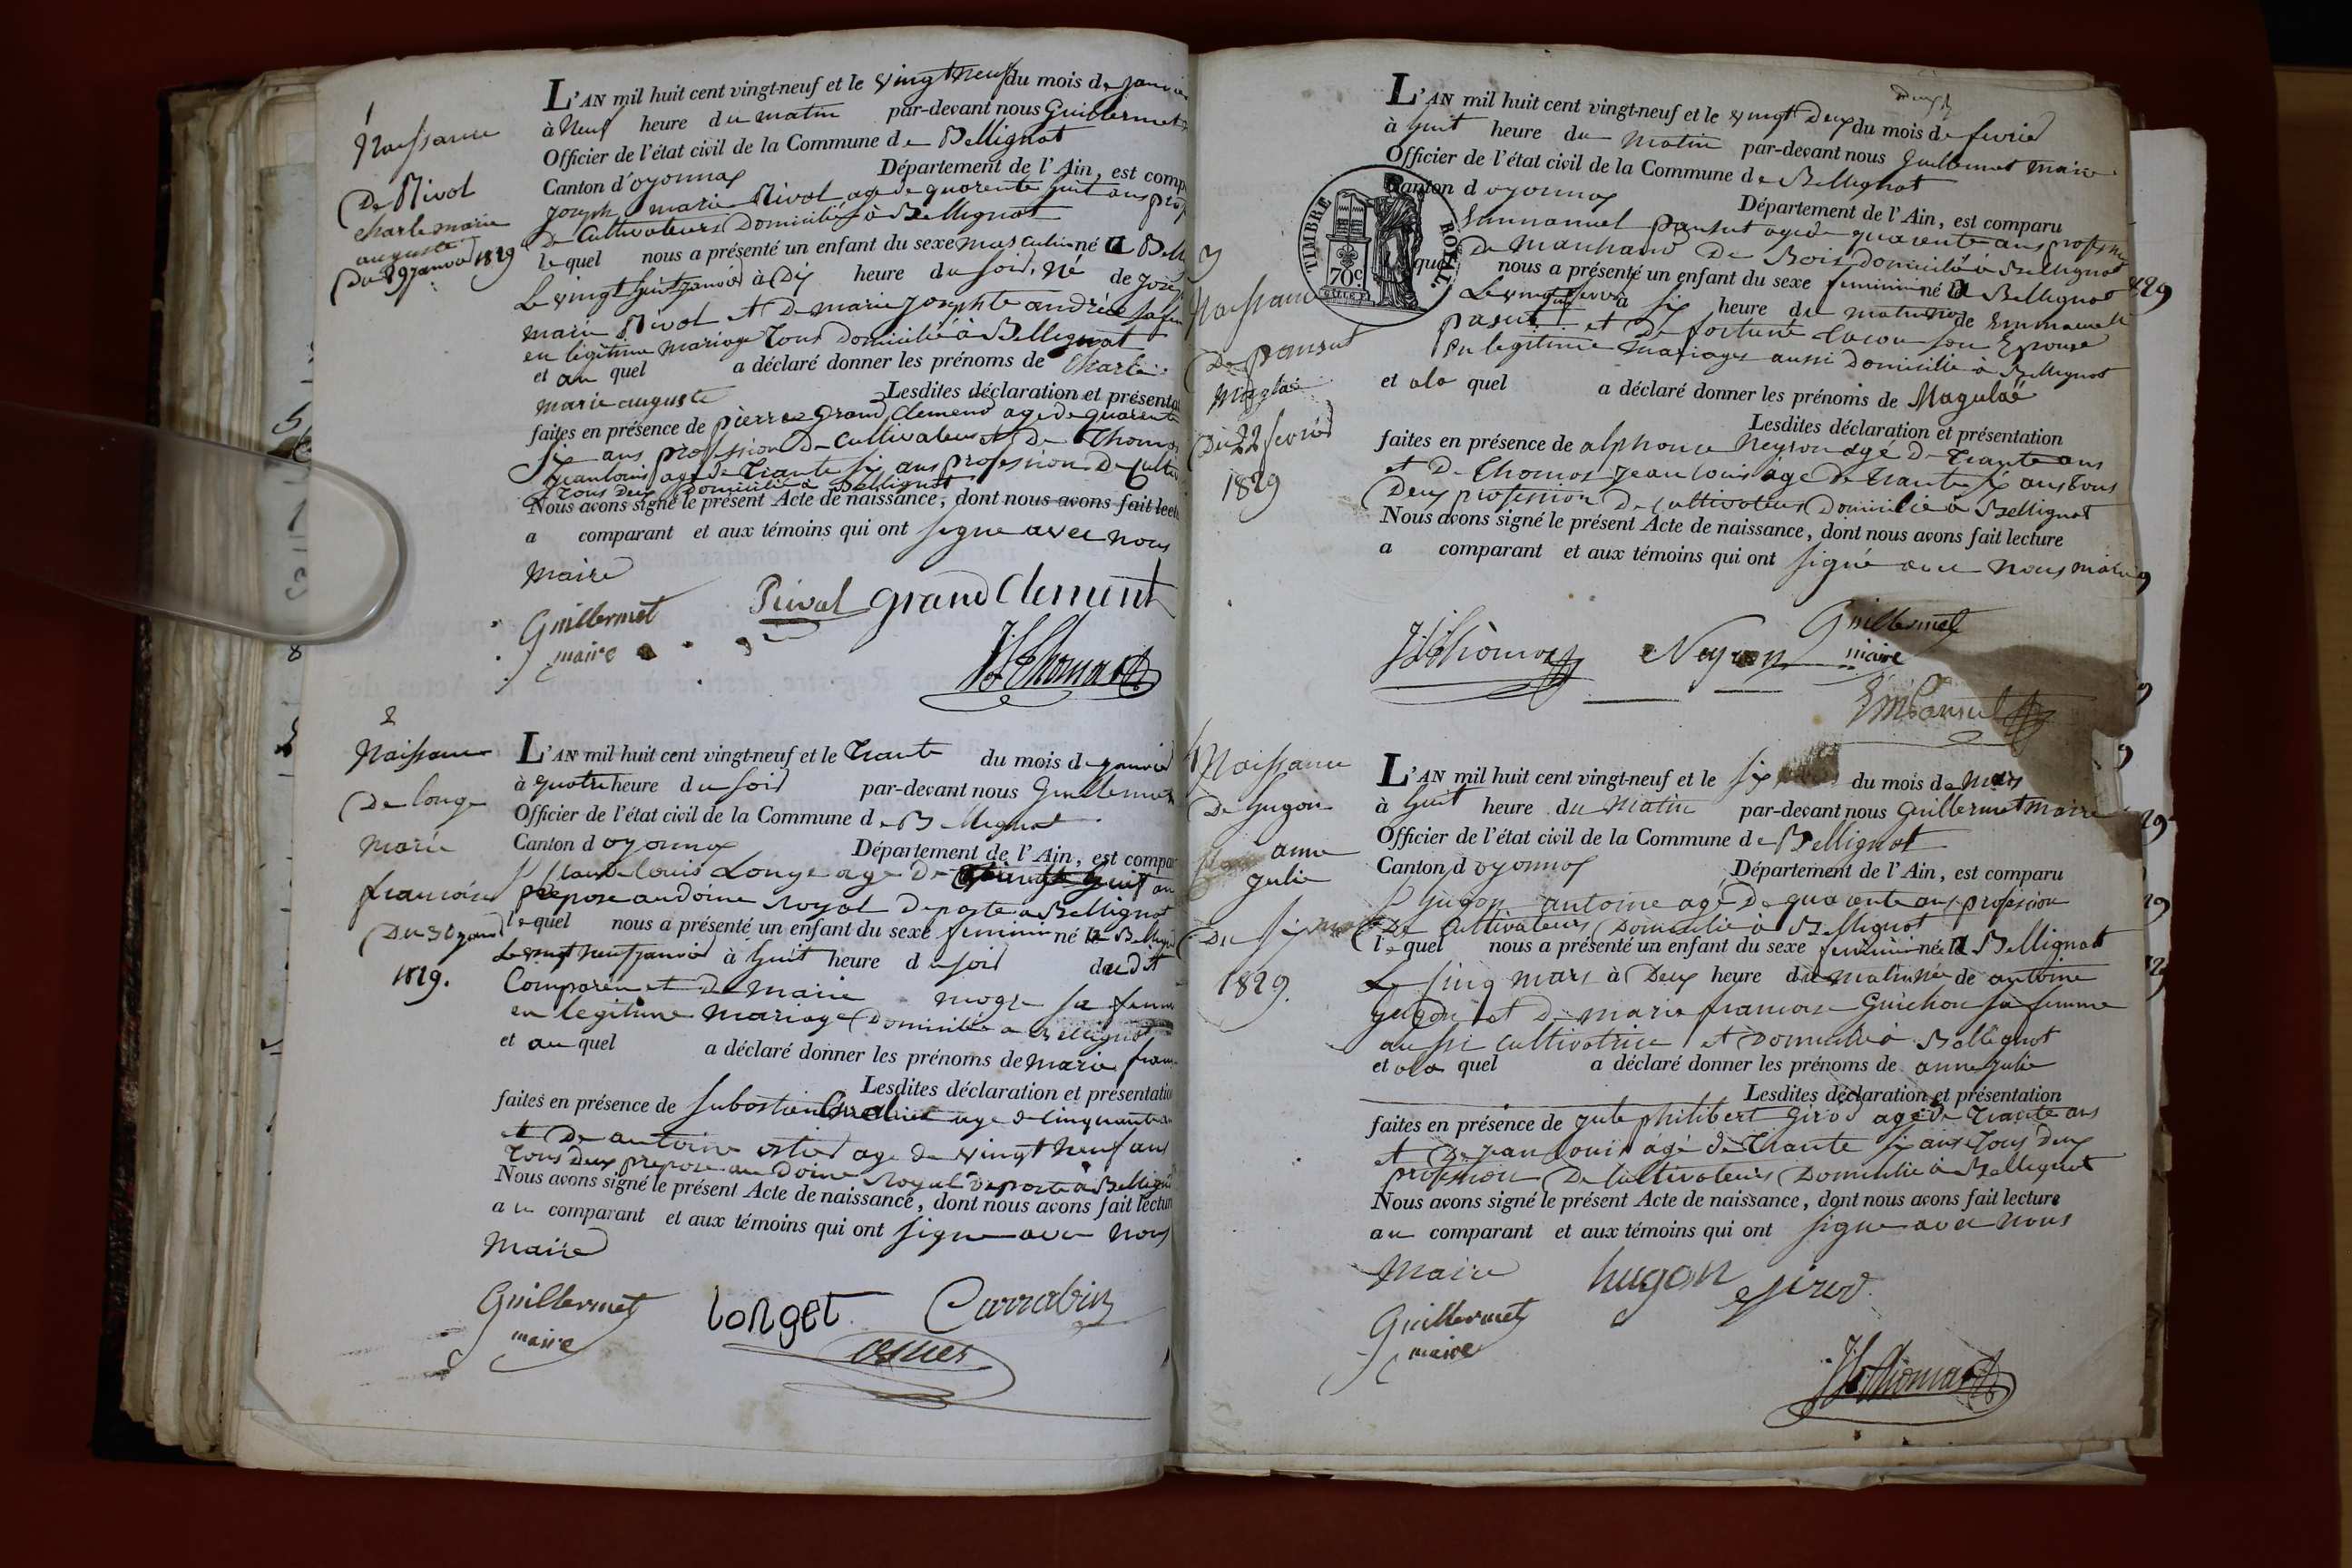 1
Naissance
De Rivol
charle marie
auguste
Du 29 janvier 1829
L'AN mil huit cent vingt-neuf et le vingt neuf du mois de janvier
à neuf heure du matin par-devant nous Guillermet
Officier de l'état civil de la Commune de Bellignat
Canton d'oyonnax Département de l'Ain, est comp
joseph marie Rivol age de quarente huit ans prof
De Cultivateur Domicilié à Bellignat
lequel nous a présenté un enfant du sexe masculin né a Bell
Le vingt huit janvier à Dix heure du soir, né de josep
marie Rivol et De marie josephte andréa sa fem
en légitime mariage tous Domicilié à Bellignat
et au quel a déclaré donner les prénoms de Charle
marie auguste Lesdites déclaration et présentat
faites en présence de pierre Grand Clement age de quarente
six ans profession De Cultivateur et De Thomas
jean louis age de trante six ans profession De Cultiv
tous Deux Domicilié à Bellignat
Nous avons signé le présent Acte de naissance, dont nous avons fait lectu
a comparant et aux témoins qui ont signe avec nous
maire
Guillermet
maire
Rivol
grand Clement
JL Thomas
2
Naissance
De longe
marie
francoise
Du 30 janvier
1829.
L'AN mil huit cent vingt-neuf et le trante du mois de janvier
à quatre heure du soir par-devant nous Guillermet
Officier de l'état civil de la Commune de Bellignat
Canton d oyonnax Département de l'Ain, est compar
Claude louis Longe age de huit an
prepose au doine royal Deposte a Bellignat
lequel nous a présenté un enfant du sexe feminin né a Bellign
Le vingt neuf janvier à huit heure du soir dudit
Comparen et De marie moge sa femme
en legitime mariage Domicilié a Bellignat
et au quel a déclaré donner les prénoms de marie franc
Lesdites déclaration et présentation
faites en présence de sebastien age de cinquante
et De antoine ostier age de vingt neuf ans
tous Deux prepose au Doine royal Deposte à Bellignat
Nous avons signé le présent Acte de naissance, dont nous avons fait lecture
au comparant et aux témoins qui ont signe avec nous
maire
Guillermet
maire
longet
Carrabin
ostier
3
Naissance
De pansut
Du 22 fevrier
1829
TIMBRE ROYAL
70c
L'AN mil huit cent vingt-neuf et le vingt Deux du mois de fevrier
à huit heure du matin par-devant nous Guillermet maire
Officier de l'état civil de la Commune de Bellignat
Canton d oyonnax Département de l'Ain, est comparu
Emmanuel pansut age de quarente ans profession
De marchand De Bois Domicilié à Bellignat
quel nous a présenté un enfant du sexe feminin né a Bellignat
Le vingt fevrier à six heure du matin née de Emmanuel
pansut et De fortune lacon son Epouse
En legitime mariage aussi Domicilié à Bellignat
et ala quel a déclaré donner les prénoms de Magulaé
Lesdites déclaration et présentation
faites en présence de alphonce Neyron age De trante ans
et De Thomas jean louis age De trante six ans tous
Deux profession De cultivateur Domicilié à Bellignat
Nous avons signé le présent Acte de naissance, dont nous avons fait lecture
a comparant et aux témoins qui ont signé avec nous maire
JL Thomas
Neyron
Guillermet
maire
Em Pansut
4
Naissance
De hugon
anne
julie
Du six mars
1829.
L'AN mil huit cent vingt-neuf et le six du mois de Mars
à huit heure du matin par-devant nous Guillermet maire
Officier de l'état civil de la Commune de Bellignat
Canton d oyonnax Département de l'Ain, est comparu
hugon antoine agé De quarente ans profession
De Cultivateur Domicilié à Bellignat
lequel nous a présenté un enfant du sexe feminin née a Bellignat
Le cinq mars à Deux heure du matin née de antoine
hugon et De marie francoise Guichon sa femme
aussi cultivatrice et Domicilié à Bellignat
et ala quel a déclaré donner les prénoms de anne julie
Lesdites déclaration et présentation
faites en présence de jule philibert Girod age De trante ans
et De jean louis agé de trante six ans tous deux
profession De Cultivateur Domicilié à Bellignat
Nous avons signé le présent Acte de naissance, dont nous avons fait lecture
au comparant et aux témoins qui ont signe avec nous
maire
hugon
girod
Guillermet
maire
JL Thomas